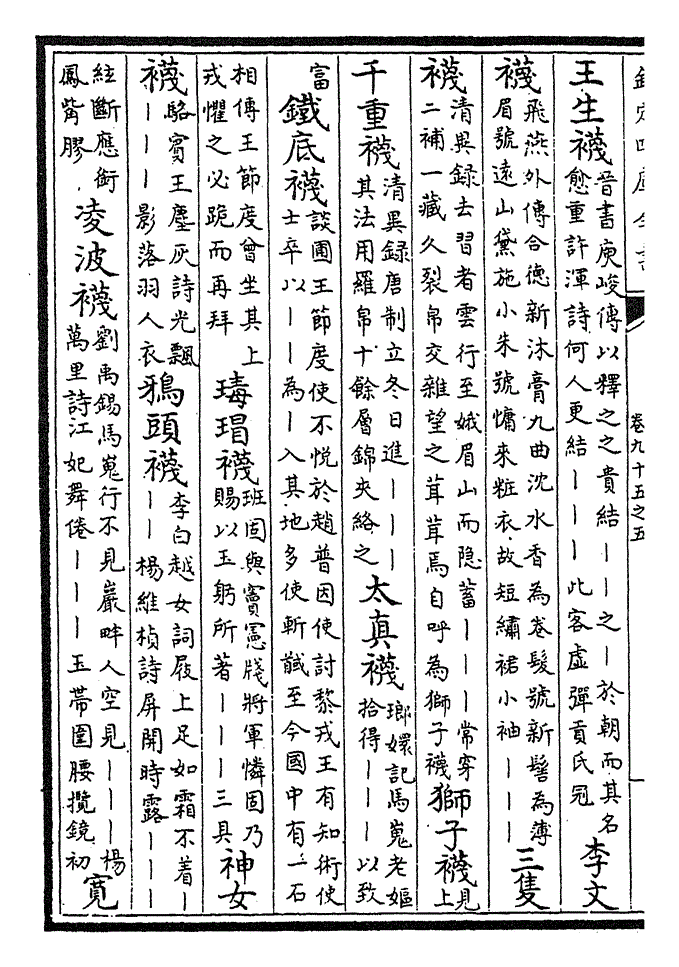 欽定四庫全書
卷九十五之五
王生襪晉書庾峻傳以釋之之貴結——之—於朝而其名
愈重許渾詩何人更結———此客虛彈貢氏冠李文
襪飛燕外傳合德新沐膏九曲沈水香為卷髮號新髻為薄
眉號遠山黛施小朱號慵來粧衣故短繡裙小袖———三隻
襪清異録去習者雲行至娥眉山而隱蓄———常穿
二補一藏久裂帛交雜望之茸茸焉自呼為獅子襪獅子襪見
上
千重襪清異録唐制立冬日進———
其法用羅帛十餘層錦夾絡之太真襪瑯嬛記馬嵬老嫗
拾得———以致
富鐵底襪談圃王節度使不悅於趙普因使討黎戎王有知術使
士卒以——為—入其地多使斬馘至今國中有一石
相傳王節度曾坐其上
戎懼之必跪而再拜瑇瑁襪班固與竇憲牋將軍憐固乃
賜以玉躬所著———三具神女
襪駱賓王塵灰詩光飄
———影落羽人衣鴉頭襪李白越女詞屐上足如霜不着—
——楊維楨詩屏開時露———
絃斷應銜
鳳觜膠凌波襪劉禹錫馬嵬行不見巖畔人空見———楊
萬里詩江妃舞倦———玉帶圍腰攬鏡初寛